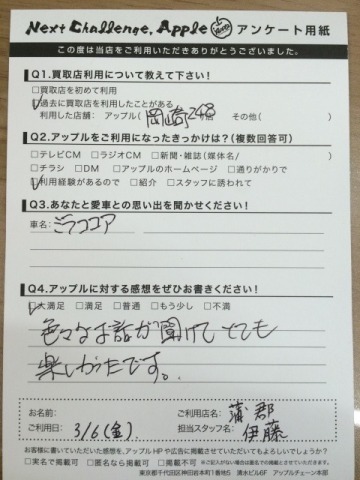 Next Challenge, Apple Apple アンケート用紙
この度は当店をご利用いただきありがとうございました。
Q1.買取店利用について教えて下さい!
□買取店を初めて利用
□過去に買取店を利用したことがある
利用した店舗: アップル(岡崎248店 その他( )
Q2.アップルをご利用になったきっかけは?(複数回答可)
□テレビCM □ラジオCM □新聞・雑誌(媒体名/ )
□チラシ □DM □アップルのホームページ □通りがかりで
□利用経験があるので □紹介 □スタッフに誘われて
Q3.あなたと愛車との思い出を聞かせください!
車名: ミラココア
Q4.アップルに対する感想をぜひお書きください!
□大満足 □満足 □普通 □もう少し □不満
色々なお話が聞けてとても
楽しかったです。
お名前: ご利用店名: 蒲郡
ご利用日: 3/6(金) 担当スタッフ名: 伊藤
お客様に書いていただいた感想を、アップルHPや広告に掲載させていただいてもよろしいでしょうか?
□実名で掲載可 □匿名なら掲載可 □掲載不可 ※ご記入がない場合は匿名での掲載とさせていただきます。
東京都千代田区神田岩本町1番地5 清水ビル6F アップルチェーン本部